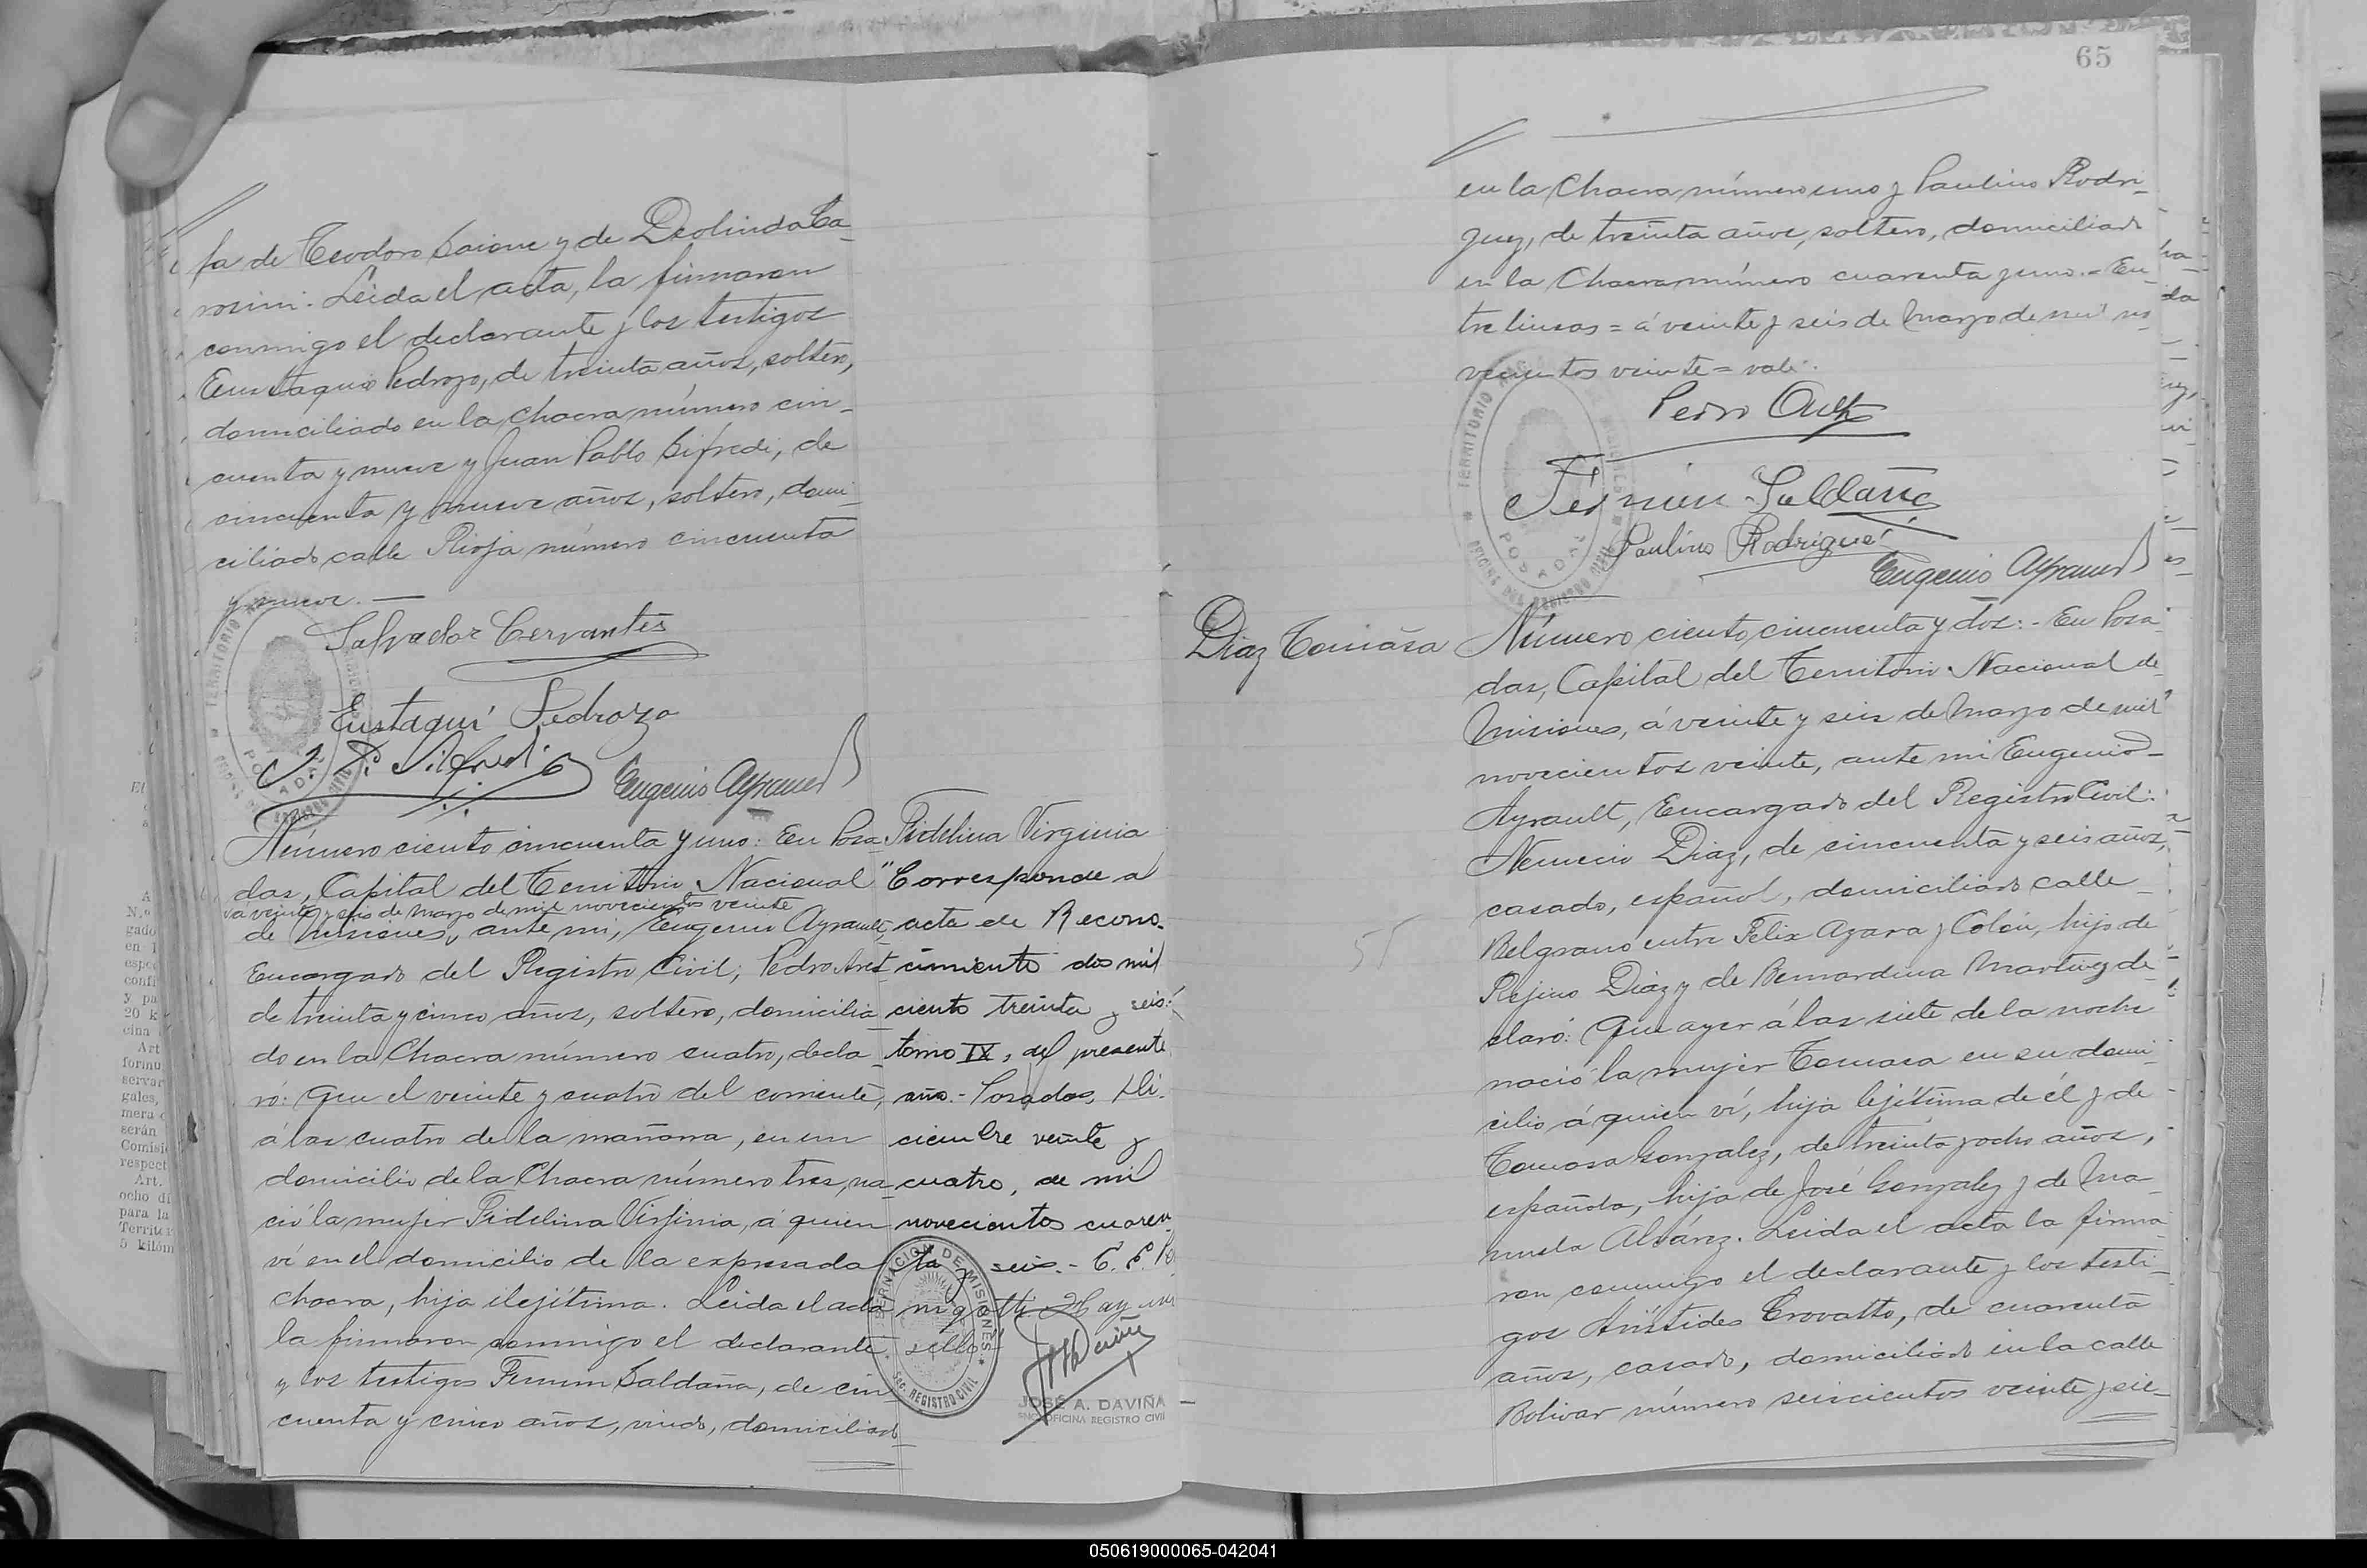 ja de Teodoro Saione y de Deolinda Ca-
rosini. Leida el acta, la firmaron
conmigo el declarante y los testigos
Eustaquio Pedrozo, de treinta años, soltero,
domiciliado en la Chacra número cin-
cuenta y nueve y Juan Pablo Sifredi, de
cincuenta y nueve años, soltero, domi-
ciliado calle Rioja número cincuenta
y nueve. —
Salvador Cervantes
Eustaqui Pedrozo
J. P. Sifredi
Eugenio Ayrault
Número ciento cincuenta y uno: En Posa-
das, Capital del Territorio Nacional
a veinte y seis de Marzo de mil novecientos veinte
de Misiones, ante mi, Eugenio Ayrault,
Encargado del Registro Civil, Pedro
de treinta y cinco años, soltero, domicilia-
do en la Chacra número cuatro, decla-
ró: Que el veinte y cuatro del corriente,
á las cuatro de la mañana, en un
domicilio de la Chacra número tres, na-
ció la mujer Fidelina Virjinia, á quien
ví en el domicilio de la expresada
chacra, hija ilejítima. Leida el acta
la firmaron conmigo el declarante
y los testigos Fermin Saldaña, de cin-
cuenta y cinco años, viudo, domiciliado
Fidelina Virginia
"Corresponde a
acta de Recono-
cimiento dos mil
ciento treinta y seis:
tomo IX, del presente
año.- Posadas, Di-
ciembre veinte y
cuatro, de mil
novecientos cuaren-
ta y seis.-
Hay un
sello
GOBERNACION DE MISIONES
SEC. REGISTRO CIVIL
JOSÉ A. DAVIÑA
ENC. OFICINA REGISTRO CIVIL
65
en la Chacra número uno y Paulino Rodri-
guez, de treinta años, soltero, domiciliado
en la Chacra número cuarenta y uno.= En-
tre lineas = á veinte y seis de Marzo de mil no-
vecientos veinte = vale.
Pedro
Fermin Saldaña
Paulino Rodriguez
Eugenio Ayrault
Diaz Tomása
Número ciento cincuenta y dos:- En Posa-
das, Capital del Territorio Nacional de
Misiones, á veinte y seis de Marzo de mil
novecientos veinte, ante mi Eugenio
Ayrault, Encargado del Registro Civil:
Nemecio Diaz, de cincuenta y seis años,
casado, español, domiciliado calle
Belgrano entre Felix Azara y Colón, hijo de
Rejino Diaz y de Bernardina Martinez de-
claró: Que ayer á las siete de la noche
nació la mujer Tomasa en su domi-
cilio á quien ví, hija lejítima de él y de
Tomasa Gonzalez, de treinta y ocho años,
española, hija de José Gonzalez y de Ma-
nuela Alvárez. Leida el acta la firma-
ron conmigo el declarante y los testi-
gos Arístides Crovatto, de cuarenta
años, casado, domiciliado en la calle
Bolivar número seiscientos veinte y sie-
55
050619000065-042041